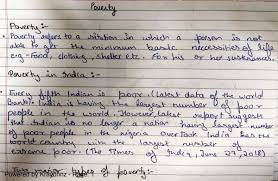 Poverty
Poverty :-
• Poverty refers to a sitation in which a person is not
able to get the minimum basic necessities of life
eg - Food, clothing, shelter etc. For his or her sustenance.
Poverty in India :-
• Every fifth Indian is poor. (latest data of the world
Bank). India is having the largest number of poor
people in the world. However, latest report suggests
that Indian is no longer a nation having largest number
of poor people in the nigeria overtook India has the
world country with the largest number of
extreme poor. (The Times of India, June 27, 2018)
of poverty :-
Powered by